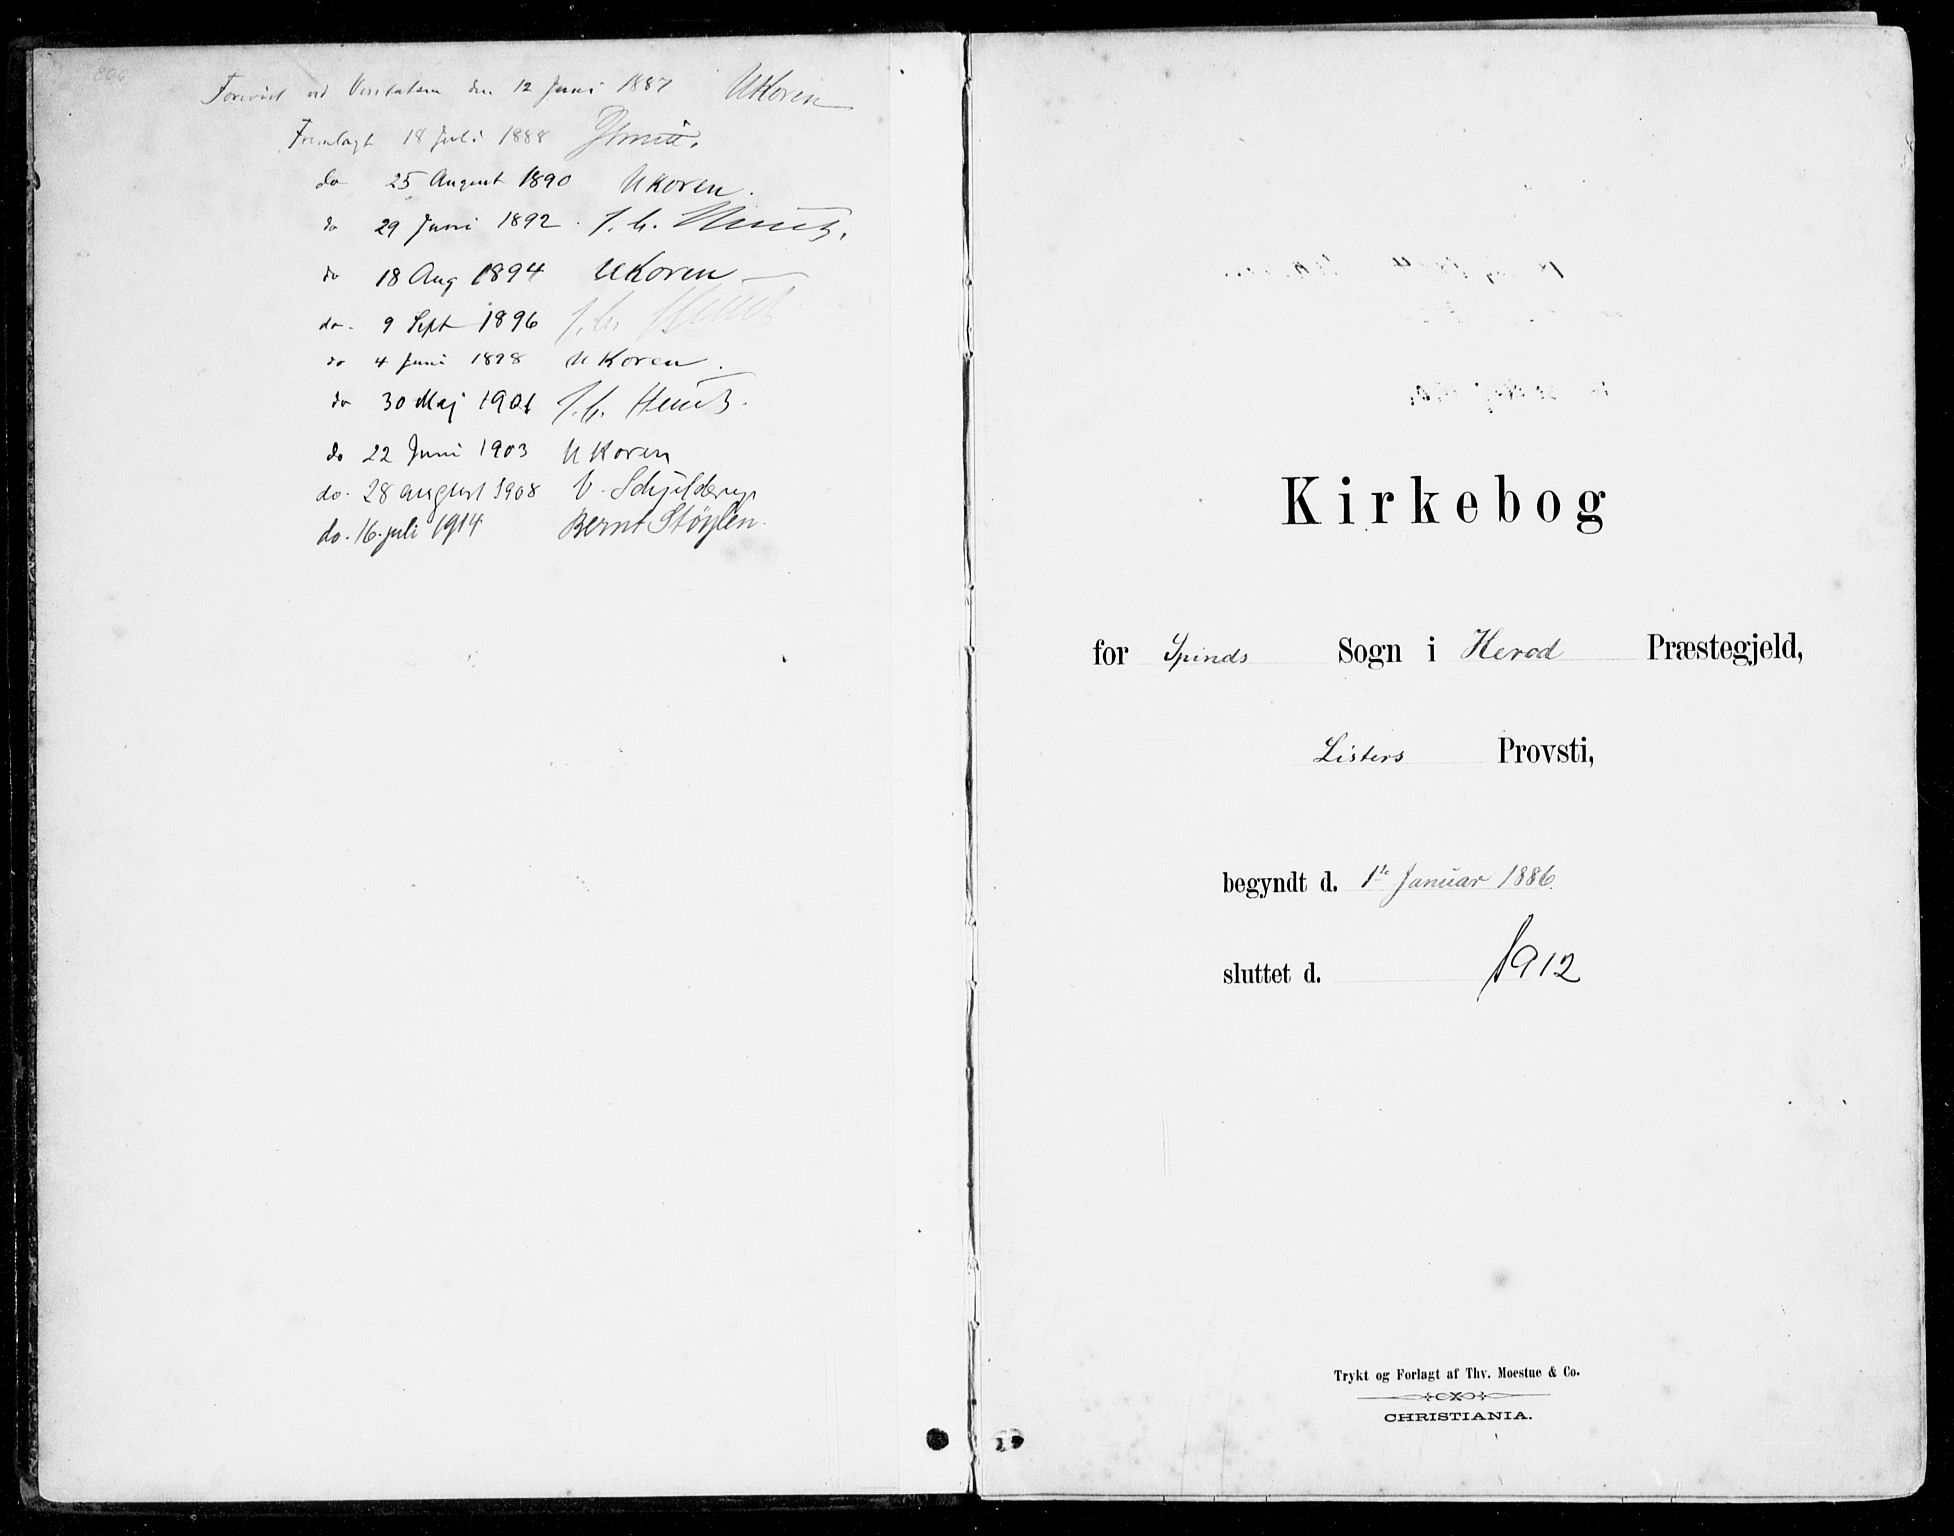 Forevist ved Visitatsen den 12 Juni 1887 UKoren
Fremlagt 18 Juli 1888
do 25 August 1890 UKoren.
do 29 Juni 1892. J. C. Heuch.
do 18 Aug 1894 UKoren
do. 9 Sept 1896 J. C. Heuch
do 4 Juni 1898 UKoren.
do 30 Maj 1901 J. C. Heuch.
do 22 Juni 1903 UKoren
do. 28 august 1908 V. Schjelderup
do. 16. juli 1914 Bernt Støylen.
Kirkebog
for Spinds Sogn i Herod Præstegjeld,
Listers Provsti,
begyndt d. 1te Januar 1886.
sluttet d. 1912
Trykt og Forlagt af Thv. Moestue & Co.
CHRISTIANIA.